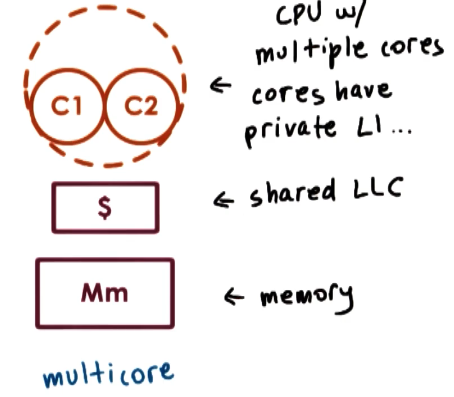 CPU w/
multiple cores
C1 C2
← cores have
private L1...
$
← shared LLC
Mm
← memory
multicore